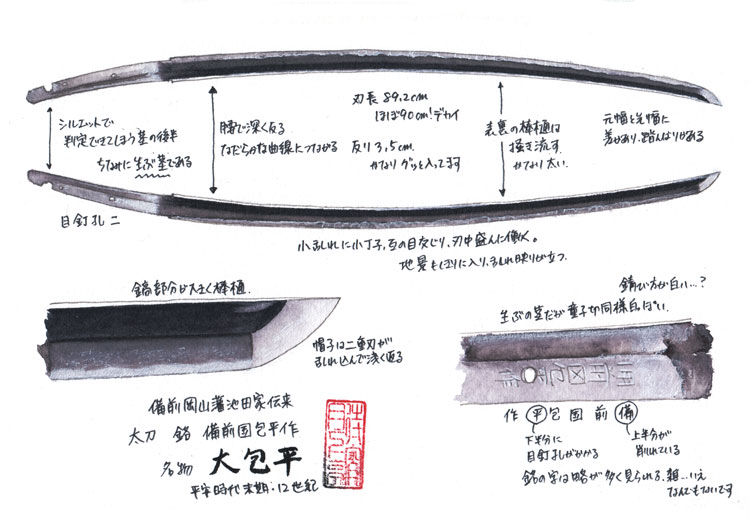 シルエットで
判定できてしまう茎の後半
ちなみに生ぶ茎である
目釘孔二
腰で深く反る
なだらかな曲線につながる
刃長 89.2cm
ほぼ90cm!デカイ
反り 3.5cm
かなりグッと入ってます
表裏の棒樋は
掻き流す。
かなり太い。
元幅と先幅に
差があり、踏んばりがある
小乱れに小丁子、互の目交じり、刃中盛んに働く。
地景もしきりに入り、乱れ映りが立つ。
鎬部分が大きく棒樋
帽子は二重刃が
乱れ込んで浅く返る
錆び方が白い…?
生ぶの茎だが童子切同様白っぽい。
作 平 包 国 前 備
下半分に
目釘孔がかかる
上半分が
削れている
銘の字は略が多く見られる、雑…いえ
なんでもないです
備前岡山藩池田家伝来
太刀 銘 備前国包平作
名物 大包平
平安時代末期:12世紀